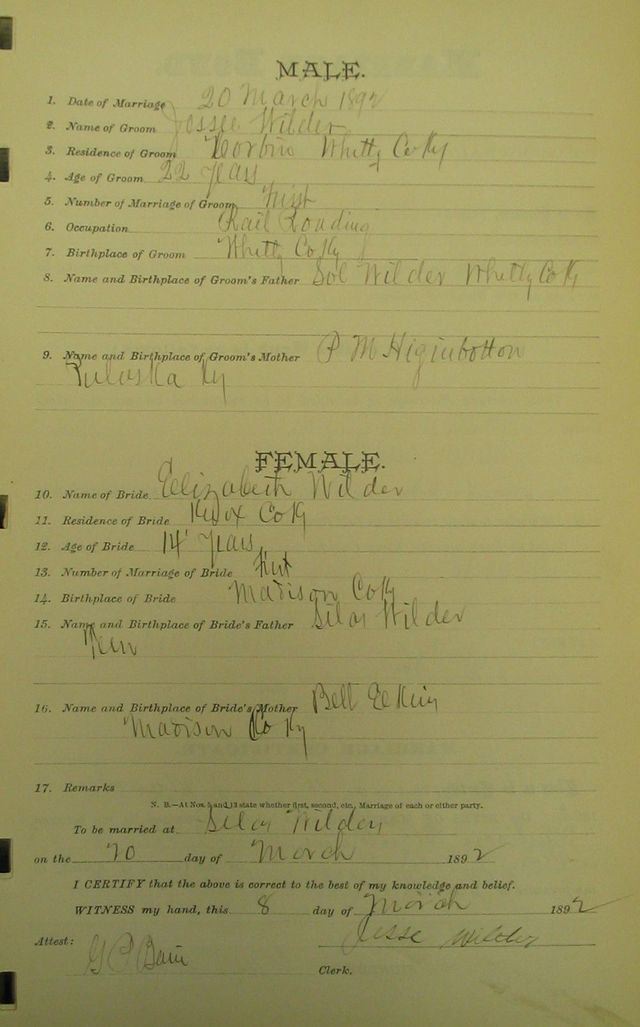 MALE.
1. Date of Marriage 20 March 1892
2. Name of Groom Jessee Wilder
3. Residence of Groom Corbin Whitly Co Ky
4. Age of Groom 22 Years
5. Number of Marriage of Groom First
6. Occupation Rail Roading
7. Birthplace of Groom Whitly Co Ky
8. Name and Birthplace of Groom's Father Sol Wilder Whitly Co Ky
9. Name and Birthplace of Groom's Mother P M Higinbotton
Pulaska Ky
FEMALE.
10. Name of Bride Elizabeth Wilder
11. Residence of Bride Knox Co Ky
12. Age of Bride 14 Years
13. Number of Marriage of Bride First
14. Birthplace of Bride Madison Co Ky
15. Name and Birthplace of Bride's Father Silas Wilder
Tenn
16. Name and Birthplace of Bride's Mother Bell
Madison Co Ky
17. Remarks
N. B.—At Nos. 5 and 13 state whether first, second, etc., Marriage of each or either party.
To be married at Silas Wilders
on the 20 day of March 1892
I CERTIFY that the above is correct to the best of my knowledge and belief.
WITNESS my hand, this 8 day of March 1892
Jesse Wilder
Attest:
G C Bain
Clerk.